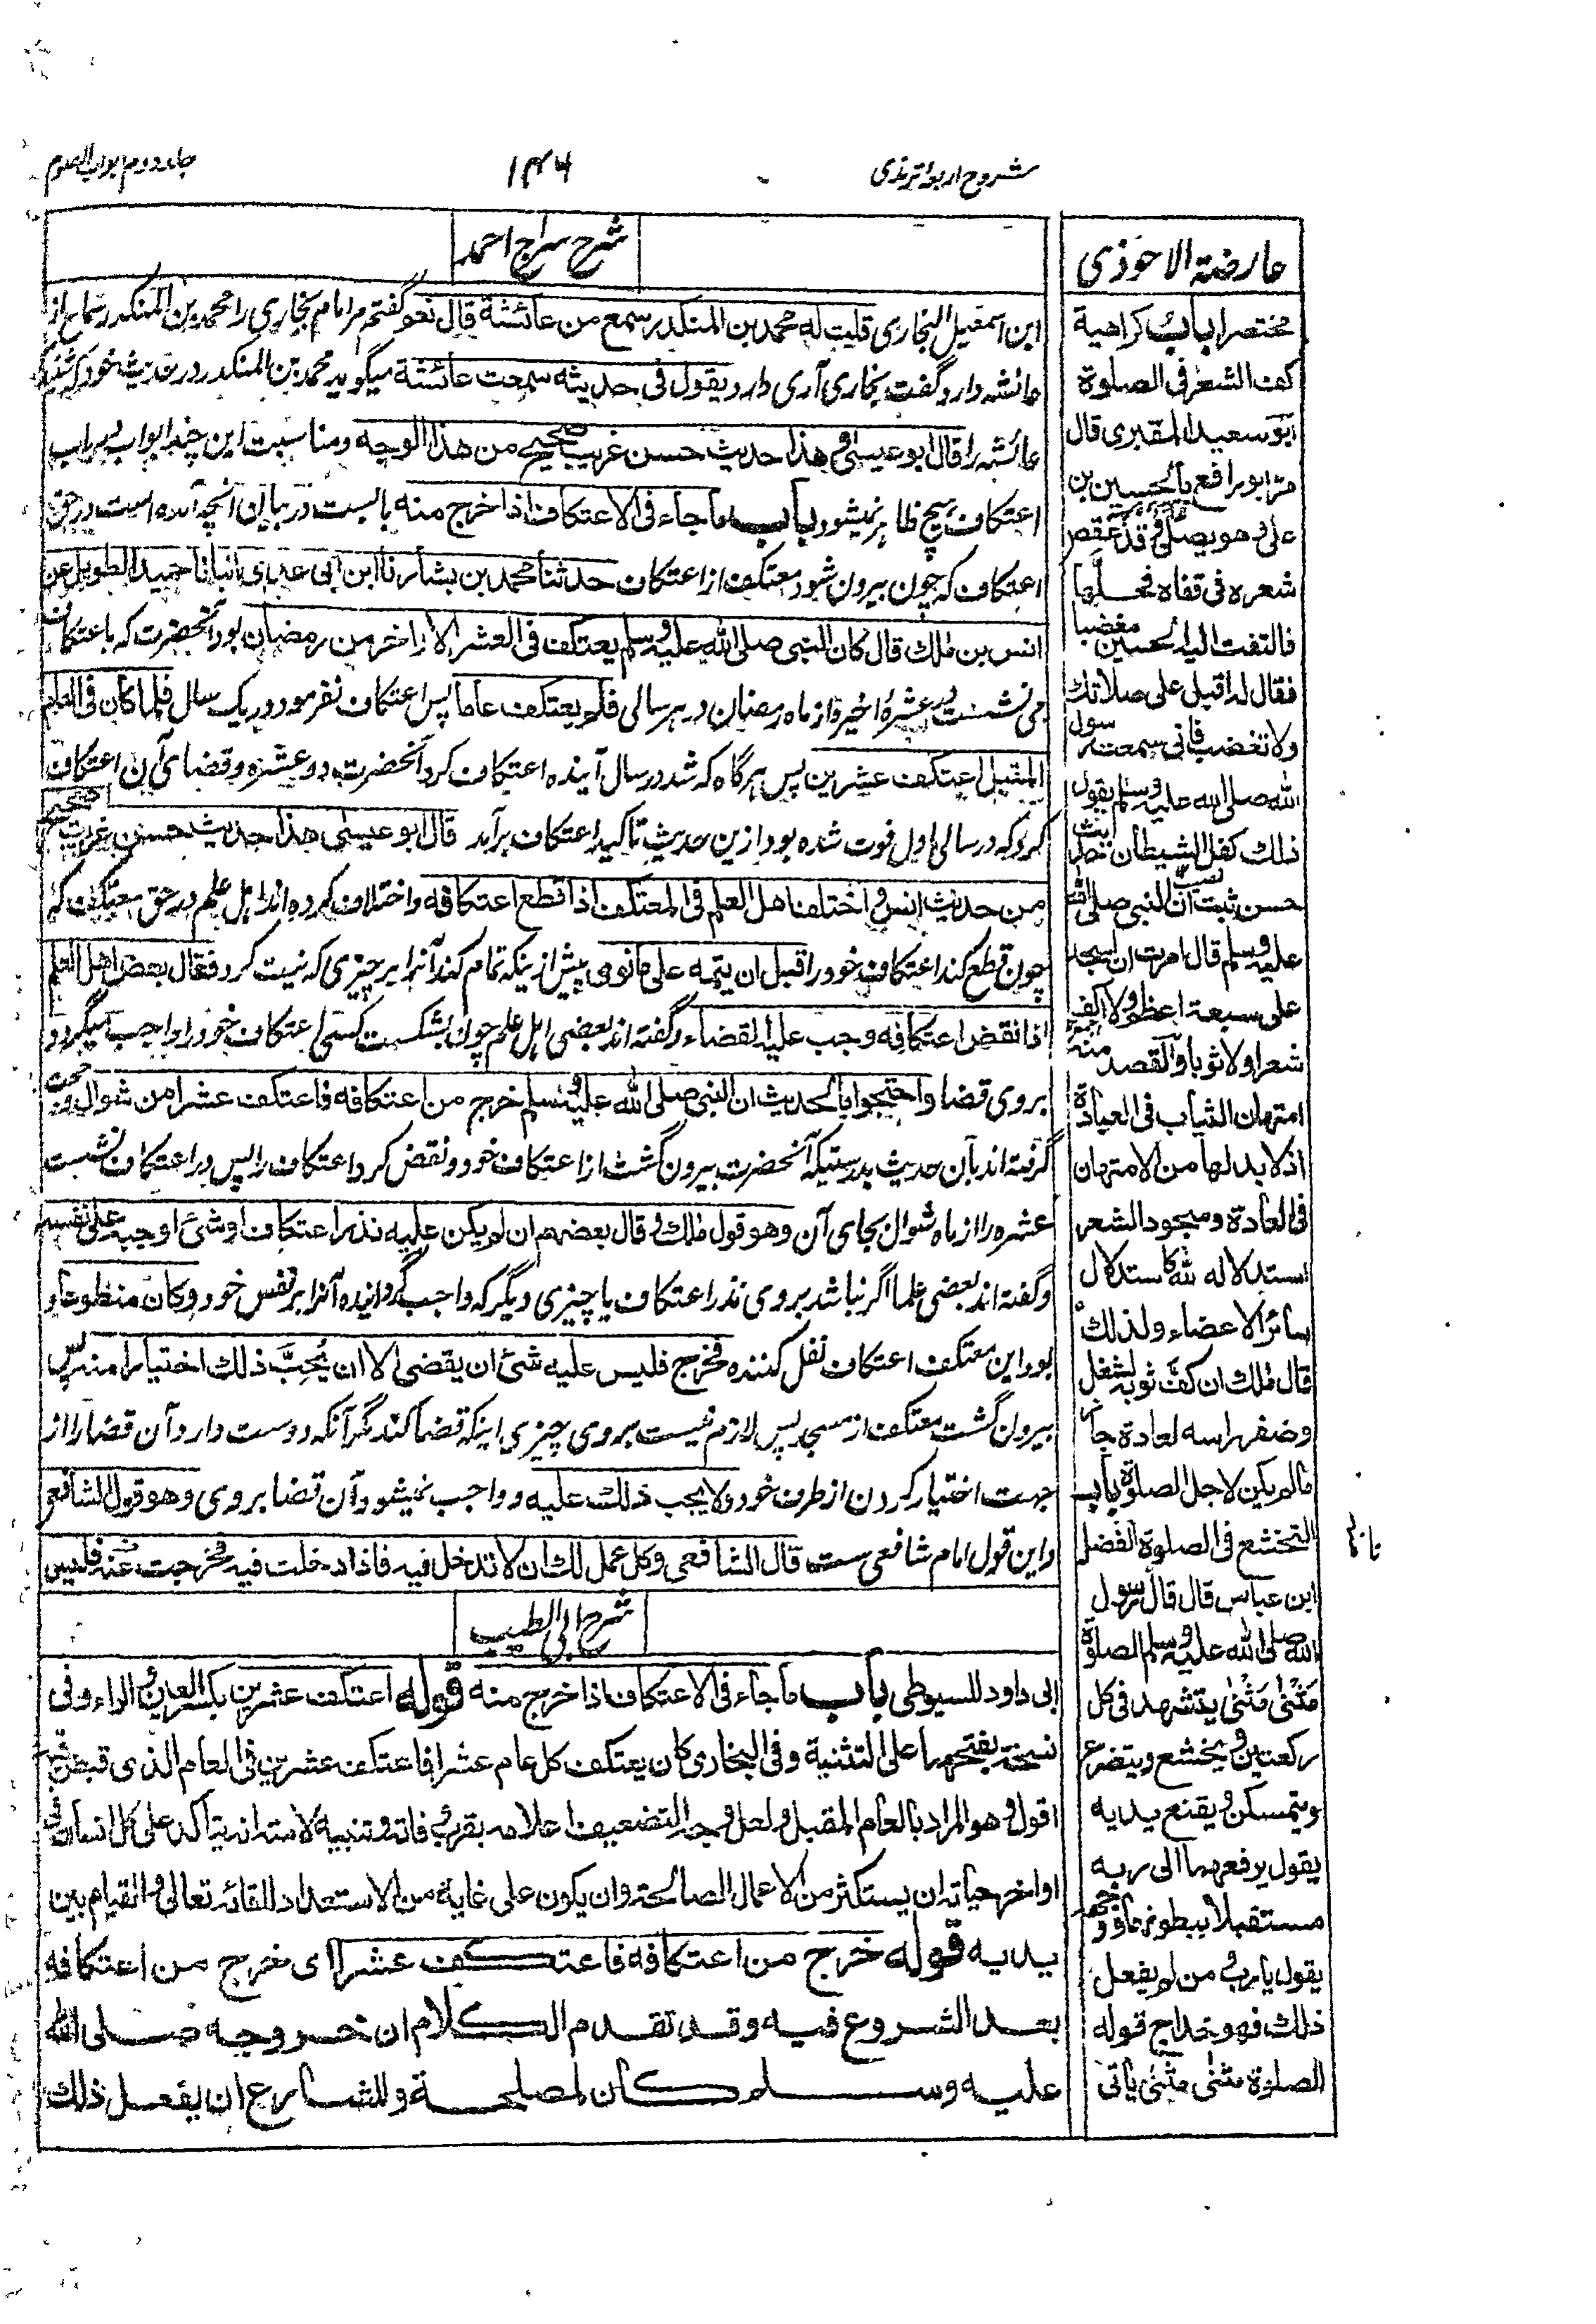 شروح اربعه ترمذی
۱۴۶
جلد دوم ابواب الصوم
عارضة الاحوذی
مختصرا باب كراهية
كف الشعر فی الصلوة
ابو سعيد المقبری قال
مر ابو رافع بالحسين بن
علی وهو يصلی وقد عقص
شعره فی قفاه فحلها
فالتفت اليه الحسين مغضبا
فقال له اقبل علی صلاتك
ولا تغضب فانی سمعت رسول
الله صلی الله عليه وسلم يقول
ذلك كفل الشيطان حديث
حسن ثبت ان النبی صلی الله
عليه وسلم قال امرت ان اسجد
علی سبعة اعظم ولا اكف
شعرا ولا ثوبا والقصد منه
امتهان الثياب فی العبادة
اذ لا بد لها من الامتهان
فی العادة وسجود الشعر
استدلاله لله كاستدلال
سائر الاعضاء ولذلك
قال ملك ان كف ثوبه لشغل
وضفر راسه لعادة جاز
ما لم يكن لاجل الصلوة باب
التخشع فی الصلوة الفضل
ابن عباس قال قال رسول
الله صلی الله عليه وسلم الصلوة
مثنى مثنى يتشهد فی كل
ركعتين ويخشع ويتضرع
ويتمسكن ويقنع يديه
يقول يرفعهما الى ربه
مستقبلا ببطونهما وجهه
يقول يا رب ومن لم يفعل
ذلك فهو خداج قوله
الصلوة مثنى مثنى ياتی
شرح سراج احمد
ابن اسمعيل البخاری قلت له محمد بن المنكدر سمع من عائشة قال نعم گفتم مر امام بخاری را محمد بن المنكدر سماع از
عائشه دارد گفت بخاری آری دارد يقول فی حديثه سمعت عائشة میگوید محمد بن المنكدر در حدیث خود که شنیدم
عائشه را قال ابو عيسى وهذا حديث حسن غريب صحيح من هذا الوجه ومناسبت این چند ابواب بهر باب
اعتكاف هیچ ظاهر نمیشود باب ما جاء فی الاعتكاف اذا خرج منه بابست در بیان آنچه آمده است در حق
اعتكاف که چون بیرون شود معتکف از اعتکاف حدثنا محمد بن بشار نا ابن ابی عدی انبانا حميد الطويل عن
انس بن ملك قال كان النبی صلی الله عليه وسلم يعتكف فی العشر الاواخر من رمضان بود آنحضرت که باعتکاف
می نشست در عشرهٔ اخیره از ماه رمضان در هر سالی فلم يعتكف عاما پس اعتکاف نفرمود در یک سال فلما كان فی العام
المقبل اعتكف عشرين پس هرگاه که شد در سال آینده اعتکاف کرد آنحضرت دو عشره و قضای آن اعتکاف
کرد که در سالی اول فوت شده بود ازین حدیث تاکید اعتکاف برآمد قال ابو عيسى هذا حديث حسن غريب صحيح
من حديث انس واختلف اهل العلم فی المعتكف اذا قطع اعتكافه واختلاف کرده اند اهل علم در حق معتکف که
چون قطع کند اعتکاف خود را قبل ان يتمه على ما نوى پیش ازینکه تمام کند آنرا بر چیزی که نیت کرد فقال بعض اهل العلم
اذا نقض اعتكافه وجب عليه القضاء وگفته اند بعضی اهل علم چون بشکست کسی اعتکاف خود را واجب میگردد
بروی قضا واحتجوا بالحديث ان النبی صلی الله عليه وسلم خرج من اعتكافه فاعتكف عشرا من شوال وحجت
گرفته اند بآن حدیث بدرستیکه آنحضرت بیرون گشت از اعتکاف خود و نقض کرد اعتکاف را پس در اعتکاف نشست
عشره را از ماه شوال بجای آن وهو قول ملك وقال بعضهم ان لم يكن عليه نذر اعتكاف او شئ اوجبه على نفسه
وگفته اند بعضی علما اگر نباشد بروی نذر اعتکاف یا چیزی دیگر که واجب گردانیده آنرا بر نفس خود وكان متطوعا و
بود این معتکف اعتکاف نفل کننده فخرج فليس عليه شئ ان يقضی الا ان يحب ذلك اختيارا منه پس
بیرون گشت معتکف از مسجد پس لازم نیست بروی چیزی اینکه قضا کند مگر آنکه دوست دارد آن قضا را از
جهت اختیار کردن از طرف خود ولا يجب ذلك عليه وواجب نمیشود آن قضا بروی وهو قول الشافعی
واین قول امام شافعی ست قال الشافعی وكل عمل لك ان لا تدخل فيه فاذا دخلت فيه فخرجت عنه فليس
شرح ابی الطيب
ابی داود للسيوطی باب ما جاء فی الاعتكاف اذا خرج منه قوله اعتكف عشرين بكسر العين والراء وفی
نسخة بفتحهما على التثنية وفی البخاری كان يعتكف كل عام عشرا فاعتكف عشرين فی العام الذی قبض فيه
اقول وهو المراد بالعام المقبل ولعل وجه التضعيف اعلامه بقرب وفاته وتنبيه لامته انه يتاكد على كل انسان فی
اواخر حياته ان يستكثر من الاعمال الصالحة وان يكون على غاية من الاستعداد للقائه تعالى والقيام بين
يديه قوله خرج من اعتكافه فاعتكف عشرا ای خرج من اعتكافه
بعد الشروع فيه وقد تقدم الكلام ان خروجه صلی الله
عليه وسلم كان لمصلحة وللشارع ان يفعل ذلك